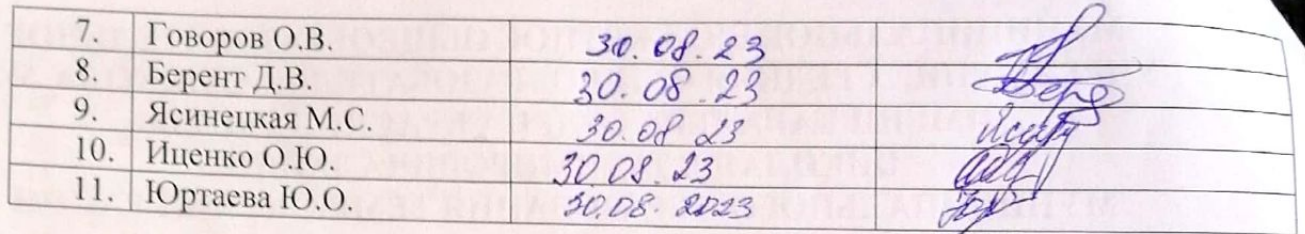 7. Говоров О.В. 30.08.23
8. Берент Д.В. 30.08.23
9. Ясинецкая М.С. 30.08 23
10. Иценко О.Ю. 30 08.23
11. Юртаева Ю.О. 30.08. 2023